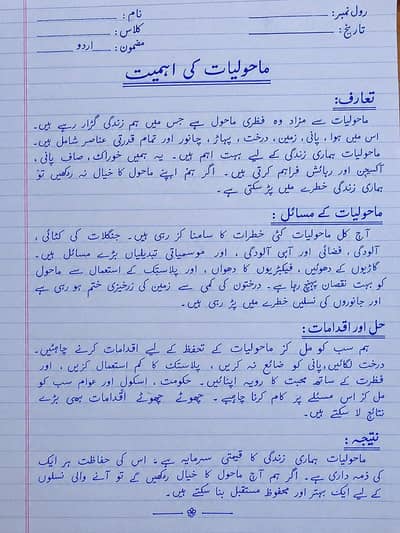 رول نمبر: نام :
تاریخ : کلاس :
مضمون : اردو
ماحولیات کی اہمیت
تعارف:
ماحولیات سے مراد وہ فطری ماحول ہے جس میں ہم زندگی گزار رہے ہیں۔
اس میں ہوا ، پانی ، زمین ، درخت ، پہاڑ ، جانور اور تمام قدرتی عناصر شامل ہیں۔
ماحولیات ہماری زندگی کے لیے بہت اہم ہیں۔ یہ ہمیں خوراک ، صاف پانی ،
آکسیجن اور رہائش فراہم کرتی ہیں۔ اگر ہم اپنے ماحول کا خیال نہ رکھیں تو
ہماری زندگی خطرے میں پڑ سکتی ہے ۔
ماحولیات کے مسائل :
آج کل ماحولیات کئی خطرات کا سامنا کر رہی ہیں۔ جنگلات کی کٹائی ،
آلودگی ، فضائی اور آبی آلودگی ، اور موسمیاتی تبدیلیاں بڑے مسائل ہیں۔
گاڑیوں کے دھوئیں ، فیکٹریوں کا دھواں ، اور پلاسٹک کے استعمال سے ماحول
کو بہت نقصان پہنچ رہا ہے ۔ درختوں کی کمی سے زمین کی زرخیزی ختم ہو رہی ہے
اور جانوروں کی نسلیں خطرے میں پڑ رہی ہیں۔
حل اور اقدامات :
ہم سب کو مل کر ماحولیات کے تحفظ کے لیے اقدامات کرنے چاہئیں۔
درخت لگائیں، پانی کو ضائع نہ کریں ، پلاسٹک کا کم استعمال کریں ، اور
فطرت کے ساتھ محبت کا رویہ اپنائیں۔ حکومت ، اسکول اور عوام سب کو
مل کر اس مسئلے پر کام کرنا چاہیے ۔ چھوٹے چھوٹے اقدامات بھی بڑے
نتائج لا سکتے ہیں۔
نتیجہ :
ماحولیات ہماری زندگی کا قیمتی سرمایہ ہے ۔ اس کی حفاظت ہر ایک
کی ذمہ داری ہے ۔ اگر ہم آج ماحول کا خیال رکھیں گے تو آنے والی نسلوں
کے لیے ایک بہتر اور محفوظ مستقبل بنا سکتے ہیں۔